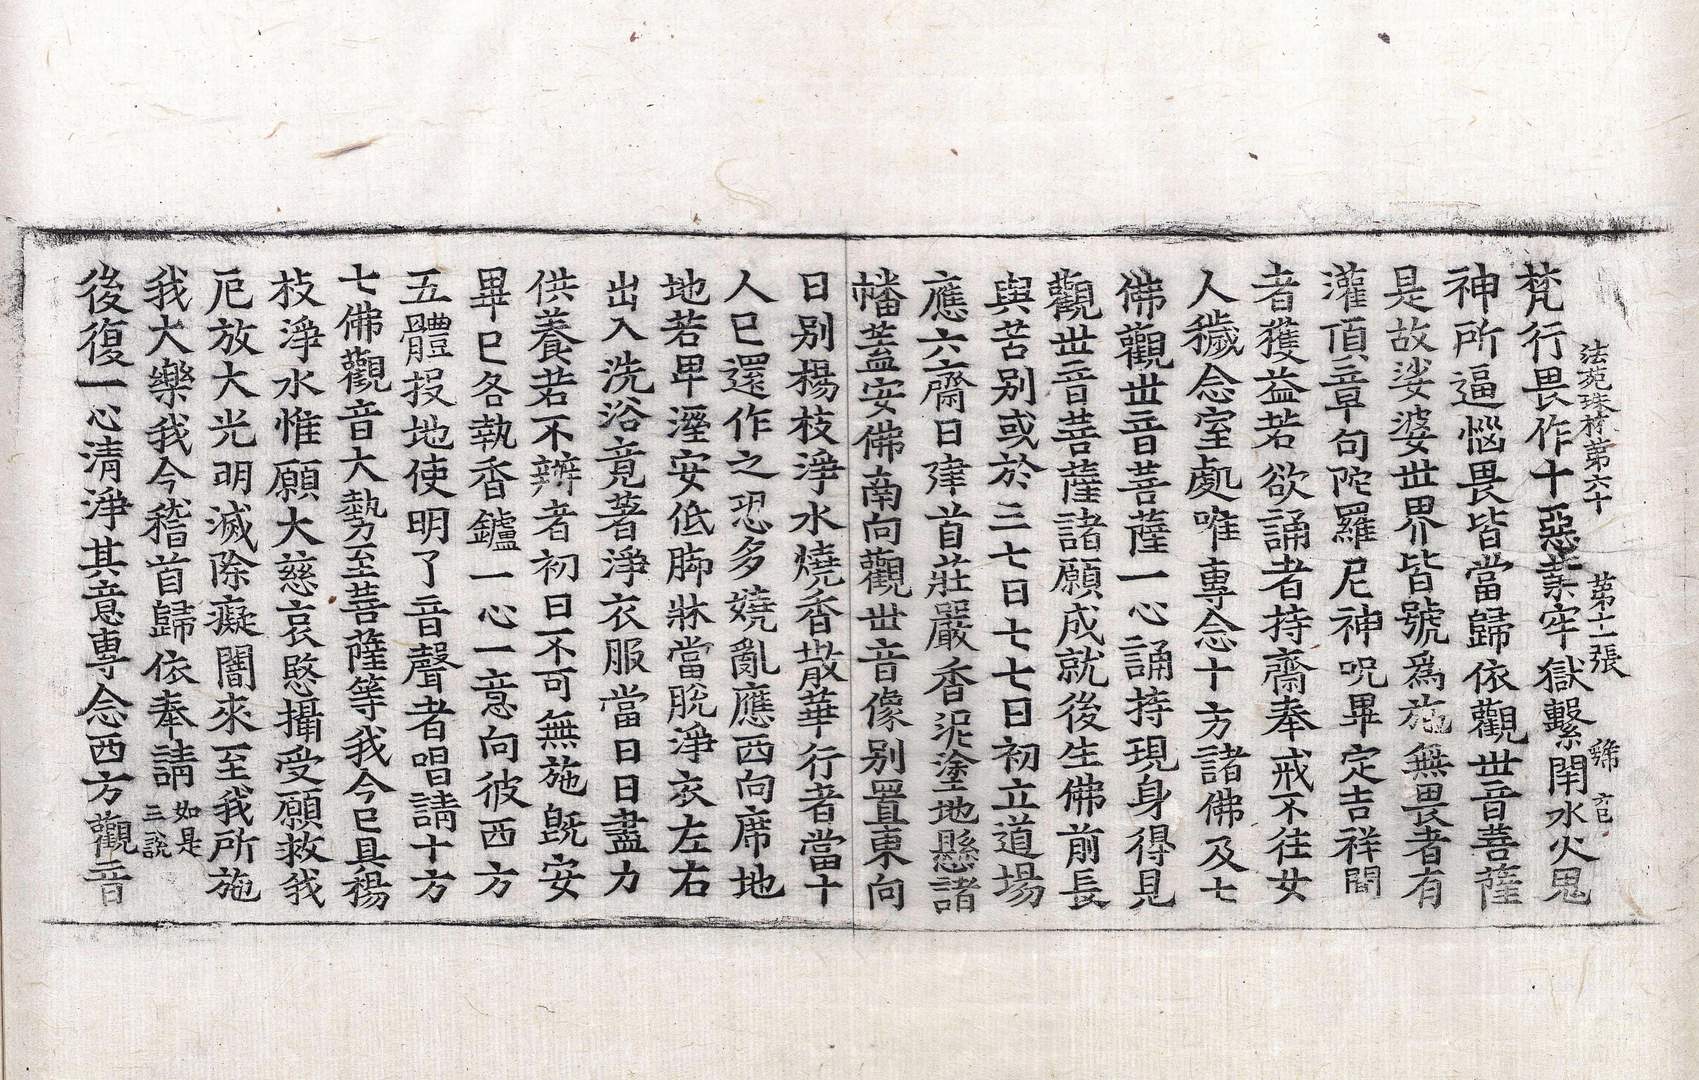 法苑珠林第六十 第十一張 綿
梵行畏作十惡業牢獄繫閇水火鬼
神所逼惱畏皆當歸依觀世音菩薩
是故娑婆世界皆號爲施無畏者有
灌頂章句陀羅尼神呪畢定吉祥聞
者獲益若欲誦者持齋奉戒不往女
人穢念室處唯專念十方諸佛及七
佛觀世音菩薩一心誦持現身得見
觀世音菩薩諸願成就後生佛前長
與苦别或於三七日七七日初立道場
應六齋日建首莊嚴香泥塗地懸諸
幡盖安佛南向觀世音像别置東向
日别楊枝淨水燒香散華行者當十
人已還作之恐多嬈亂應西向席地
地若卑溼安低脚牀當脫淨衣左右
出入洗浴竟著淨衣服當日日盡力
供養若不辨者初日不可無施旣安
畢已各執香鑪一心一意向彼西方
五體投地使明了音聲者唱請十方
七佛觀音大勢至菩薩等我今已具楊
枝淨水惟願大慈哀愍攝受願救我
厄放大光明滅除癡闇來至我所施
我大樂我今稽首歸依奉請如是三說
後復一心清淨其意專念西方觀音